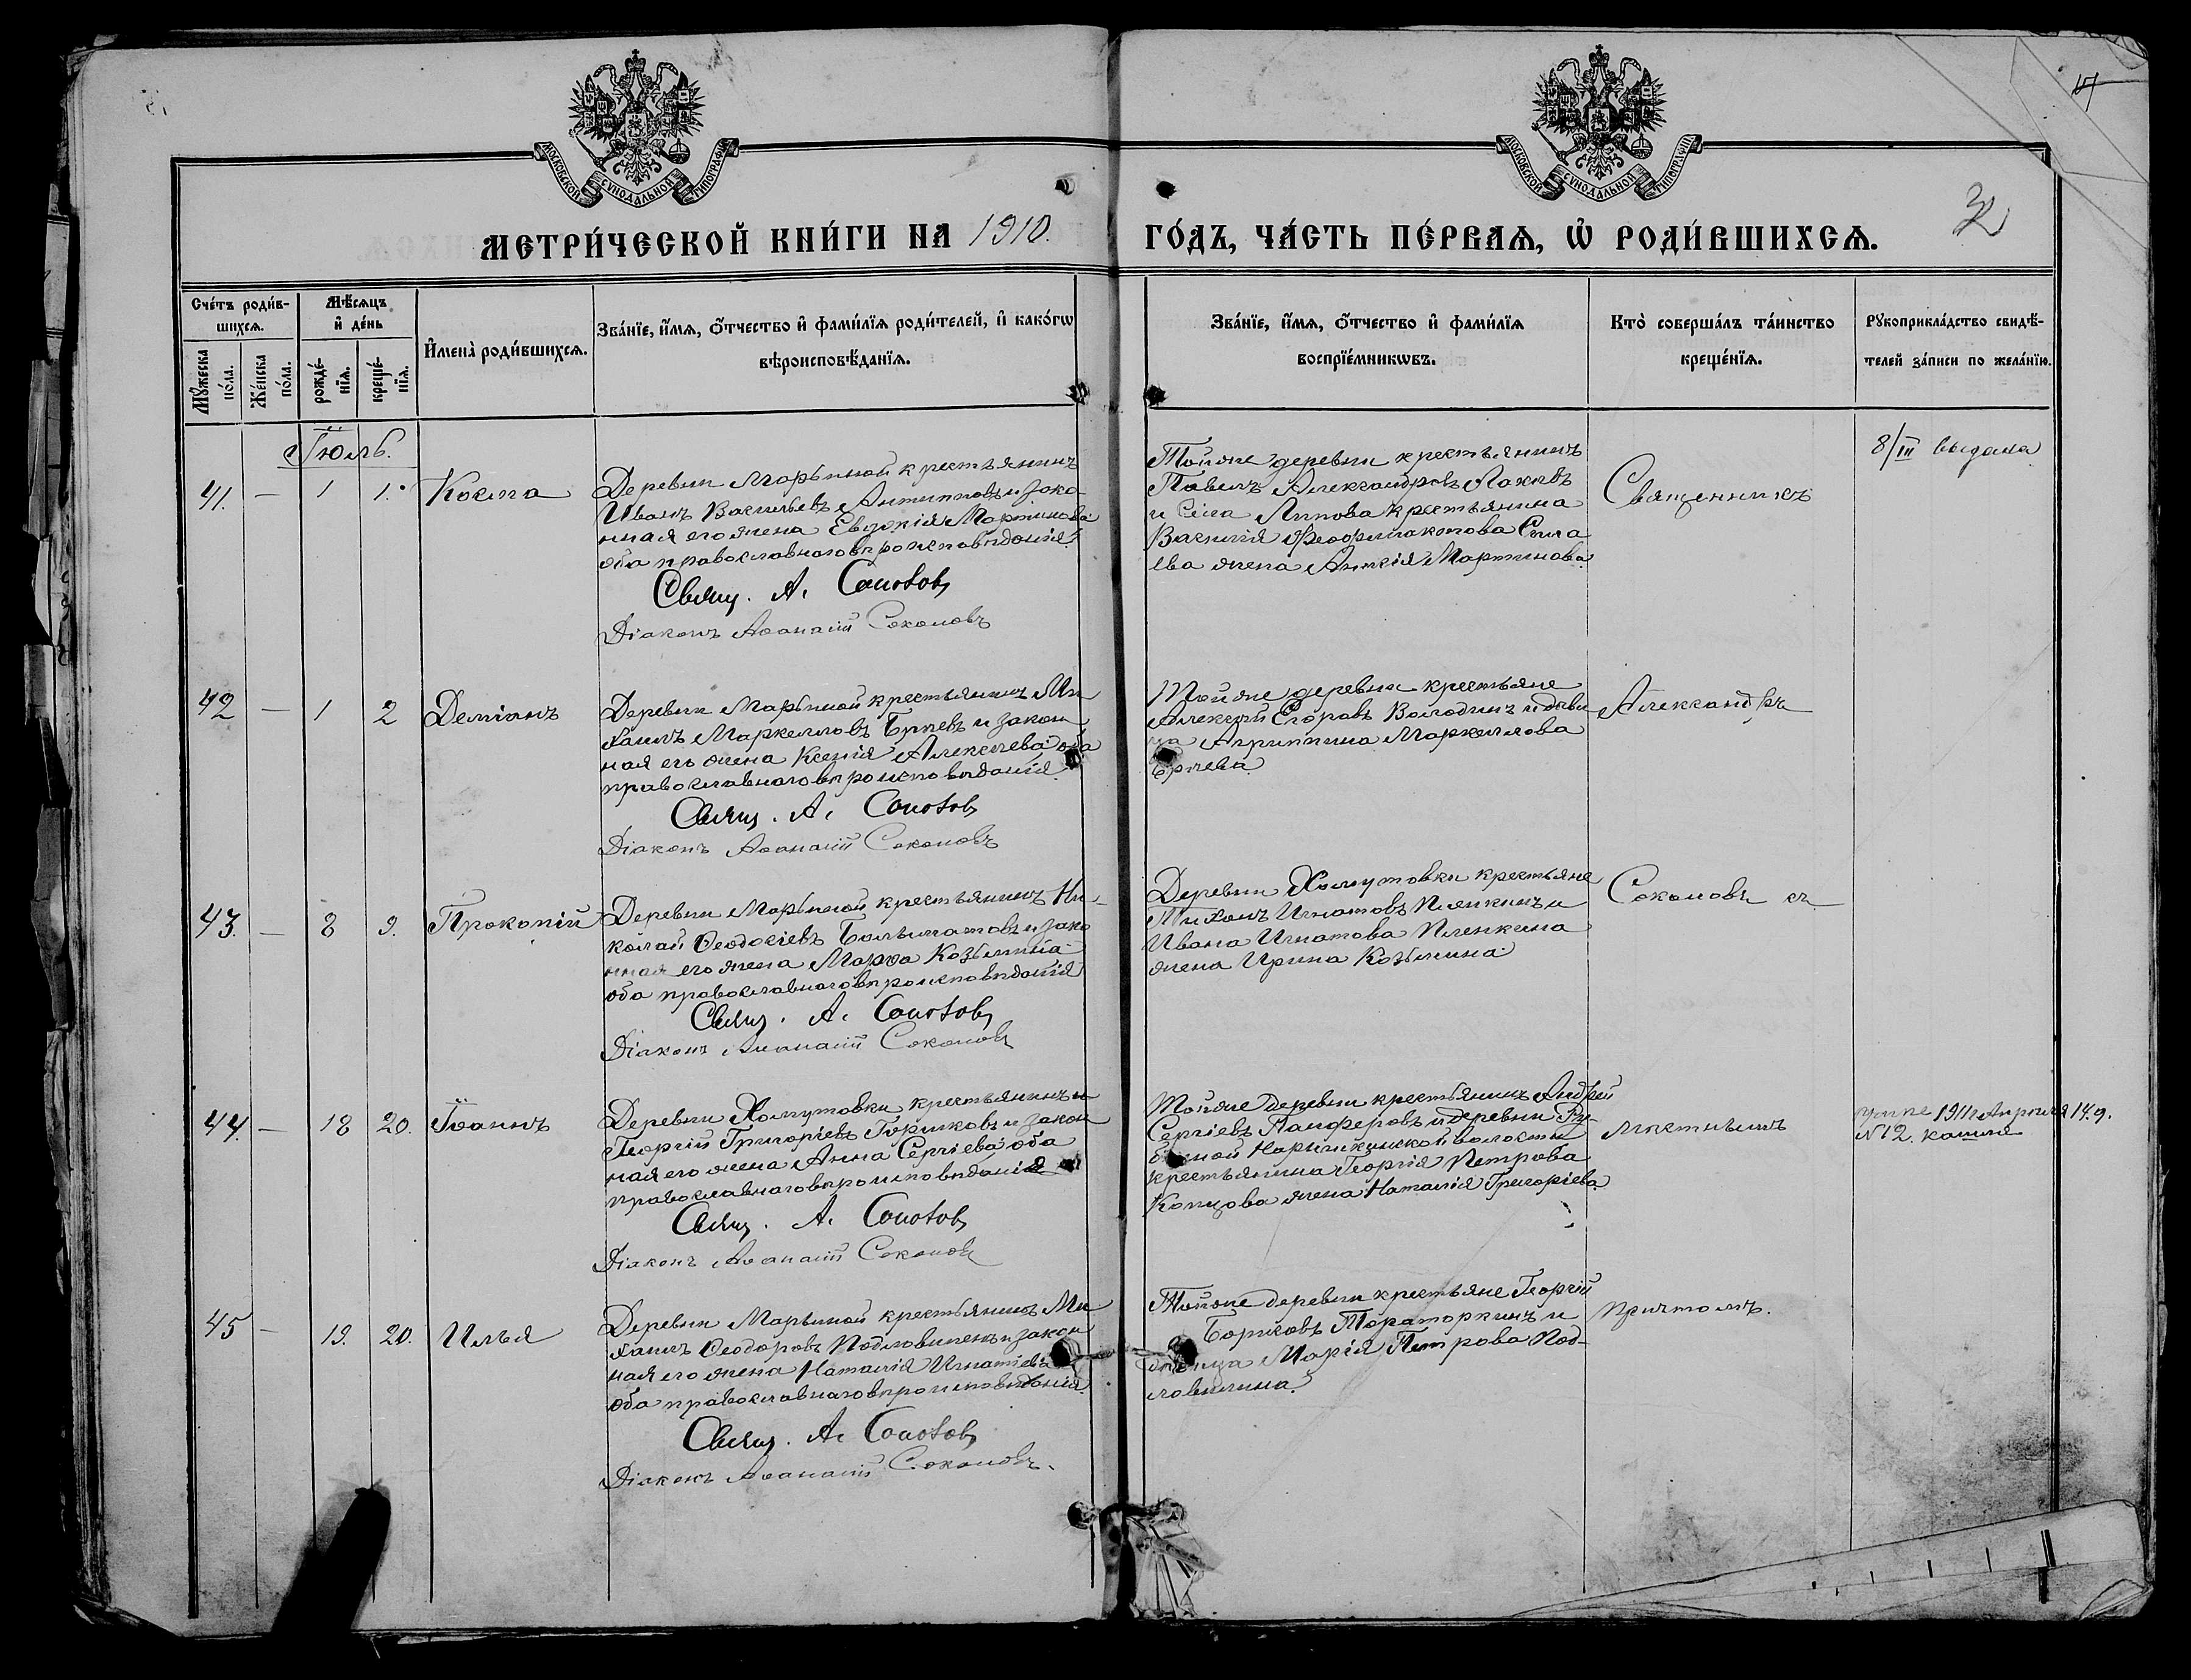 МОСКОВСКОЙ СѴНОДАЛЬНОЙ ТИПОГРАФІИ
МОСКОВСКОЙ СѴНОДАЛЬНОЙ ТИПОГРАФІИ
МЕТРИ́ЧЕСКОЙ КНИ́ГИ НА 1910.
ГО́ДЪ, ЧА́СТЬ ПЕ́РВАѦ, Ѡ҆ РОДИ́ВШИХСѦ.
Сче́тъ роди́в-
шихсѧ.
Мѣ́сѧцъ
и҆ де́нь
И҆мена̀ роди́вшихсѧ.
Зва́нїе, и҆́мѧ, ѻ҆́тчество и҆ фами́лїѧ роди́телей, и҆ како́гѡ
вѣроисповѣ́данїѧ.
Мꙋ́жеска
по́ла.
Же́нска
по́ла.
рожде́-
нїѧ.
креще́-
нїѧ.
Зва́нїе, и҆́мѧ, ѻ҆́тчество и҆ фами́лїѧ
воспрїе́мникѡвъ.
Кто̀ соверша́лъ та́инство
креще́нїѧ.
Рꙋкоприкла́дство свидѣ́-
телей за́писи по жела́нїю.
Іюль.
41. — 1 1. Косма
Деревни Марьиной крестьянинъ
Иванъ Васильевъ Антиповъ и зако
нная его жена Евдокія Мартинова
оба православнаго вѣроисповѣданія.
Свящ. А. Соколов
Діаконъ Аѳанасій Соколовъ
Тойже деревни крестьянинъ
Павелъ Александровъ
и Села Липова крестьянина
Василія Феофилактова
жена Мартинова
Священникъ
8/III выдана
42 — 1 2 Даміанъ
Деревни Марьиной крестьянинъ Ми
хаилъ Маркелловъ и закон
ная его жена Ксенія Алексѣева оба
православнаго вѣроисповѣданія.
Свящ. А. Соколов
Діаконъ Аѳанасій Соколовъ
Тойже деревни крестьяне
Алексѣй Егоровъ Володинъ и дѣви
ца Агриппина Маркеллова
Александръ
43. — 8 9. Прокопій
Деревни Марьиной крестьянинъ Ни
колай Ѳеодосіевъ и зако
нная его жена Марѳа Козьмина
оба православнаго вѣроисповѣданія
Свящ. А. Соколов
Діаконъ Аѳанасій Соколовъ
Деревни Хомутовки крестьяне
Тихонъ Игнатовъ Пленкинъ и
Ивана Игнатова Пленкина
жена Ирина Козьмина.
Соколовъ съ
44. — 18 20. Іоаннъ
Деревни Хомутовки крестьянинъ
Георгій Григоріевъ и закон
ная его жена Анна Сергіева оба
православнаго вѣроисповѣданія
Свящ. А. Соколов
Діаконъ Аѳанасій Соколовъ
Тойже деревни крестьянинъ Андрей
Сергіевъ Панферовъ и деревни
волости
крестьянина Георгія Петрова
Копцова жена Наталія Григоріева.
мѣстнымъ
1911 Апрѣля 14. д.
№ 12. копія
45 — 19. 20. Илья
Деревни Марьиной крестьянинъ Ми
хаилъ Ѳеодоровъ и закон
ная его жена Наталія Игнатіева
оба православнаго вѣроисповѣданія.
Свящ. А. Соколов
Діаконъ Аѳанасій Соколовъ.
Тойже деревни крестьяне Георгій
Борисовъ Тараторкинъ и
дѣвица Марія Петрова Под-
причтомъ.